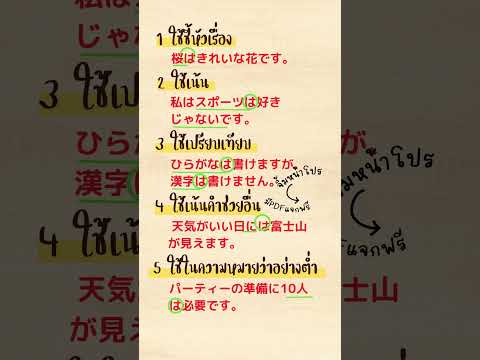 1 ใช้ชี้หัวเรื่อง
桜はきれいな花です。
じゃない
2 ใช้เน้น
3 ใช้เป
私はスポーツは好き
じゃないです。
3 ใช้เปรียบเทียบ
ひらが
ひらがなは書けますが、
漢字は書けません。
漢字
4 ใช้เน้นคำช่วยอื่น
มี PDF แจกฟรี
มหน้าโปร
4 ใช้
天気がいい日には富士山
が見えます。
แจกฟรี
5 ใช้ในความหมายว่าอย่างต่ำ
天気
士山
パーティーの準備に10人
は必要です。
が見